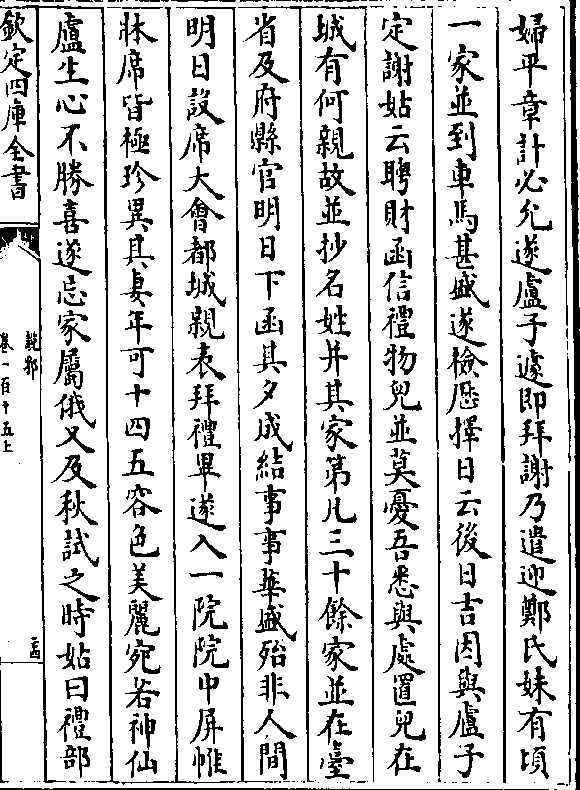 婦平章計必允遂盧子遽即拜謝乃遣迎鄭氏妹有頃
一家並到車馬甚盛遂檢厯擇日云後日吉因與盧子
定謝姑云聘財函信禮物兒並莫憂吾悉與處置兒在
城有何親故並抄名姓并其家第凡三十餘家並在臺
省及府縣官明日下函其夕成結事事華盛殆非人間
明日設席大會都城親表拜禮畢遂入一院院中屏帷
牀席皆極珍異其妻年可十四五容色美麗宛若神仙
盧生心不勝喜遂忘家屬俄又及秋試之時姑曰禮部
欽定四庫全書
說郛
卷一百十五上